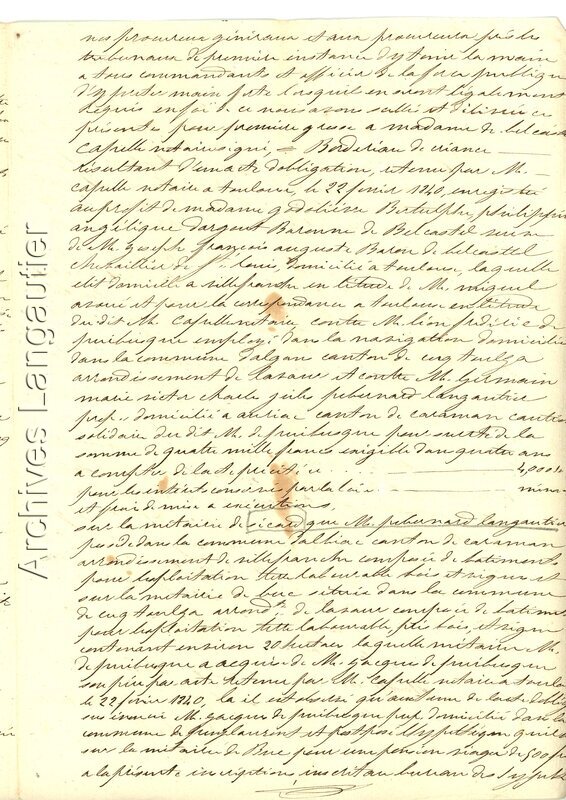 nos procureur généraux et aux procureurs près les
tribunaux de première instance d'y tenir la main
a tous commandants et officier de la force publique
d'y preter main forte lorsquils en seront légalement
requis en foi de ce nous avons scellé et délivré ces
présentes pour première grosse a madame de belcastel
capelle notaire signé = Bordereau de créance
résultant d'un acte d'obligation, retenu par M.
capelle notaire a toulouse, le 22 février 1840, enregistré
au profit de madame godelieve Bertulphe, philippine
angélique dargout Baronne de Belcastel veuve
de M. joseph françois auguste Baron de belcastel
chevaillier de St. Louis, domiciliée a toulouse, laquelle
elit domicile a villefranche en létude de M. miquel
avoué et pour la correspondance a toulouse en létude
du dit M. capelle notaire contre M. léon frédéric de
puibusque employé dans la navigation domicilié
dans la commune d'algan canton de cuq toulza
arrondissement de lavaur et contre M. Germain
marie victor charle gilles pebernard langautier
prop. domicilié a auriac canton de caraman caution
solidaire du dit M. de puibusque pour sureté de la
somme de quatre mille francs exigible dans quatre ans
a compter de lacte précitée . . . 4,000 fr
pour les intérêts conservés par la loi
et frais de mise a exécutions
sur la métairie de sicard que M. pebernard langautier
possède dans la commune d'albiac canton de caraman
arrondissement de villefranche composée de batiments
pour lexploitation terre labourable bois et vignes et
sur la métairie de berc située dans la commune
de cuq toulza arrondt. de lavaur composée de batimens
pour lexploitation terre labourable, prés bois, et vigne
contenant environ 20 hectars laquelle métairie M.
de puibusque a acquise de M. jacques de puibusque
son père par acte retenu par M. capelle notaire a toulouse
le 22 février 1840, la il est observé qu'aux termes de lacte d'obligation
M. jacques de puibusque prop. domicilié dans la
commune de puylaurens a postposé l'hypothèque quil a
sur la métairie de Berc pour une pension viagère de 500 fr
a la présente inscription, inscrit au bureau des hypothèques
Archives Langautier